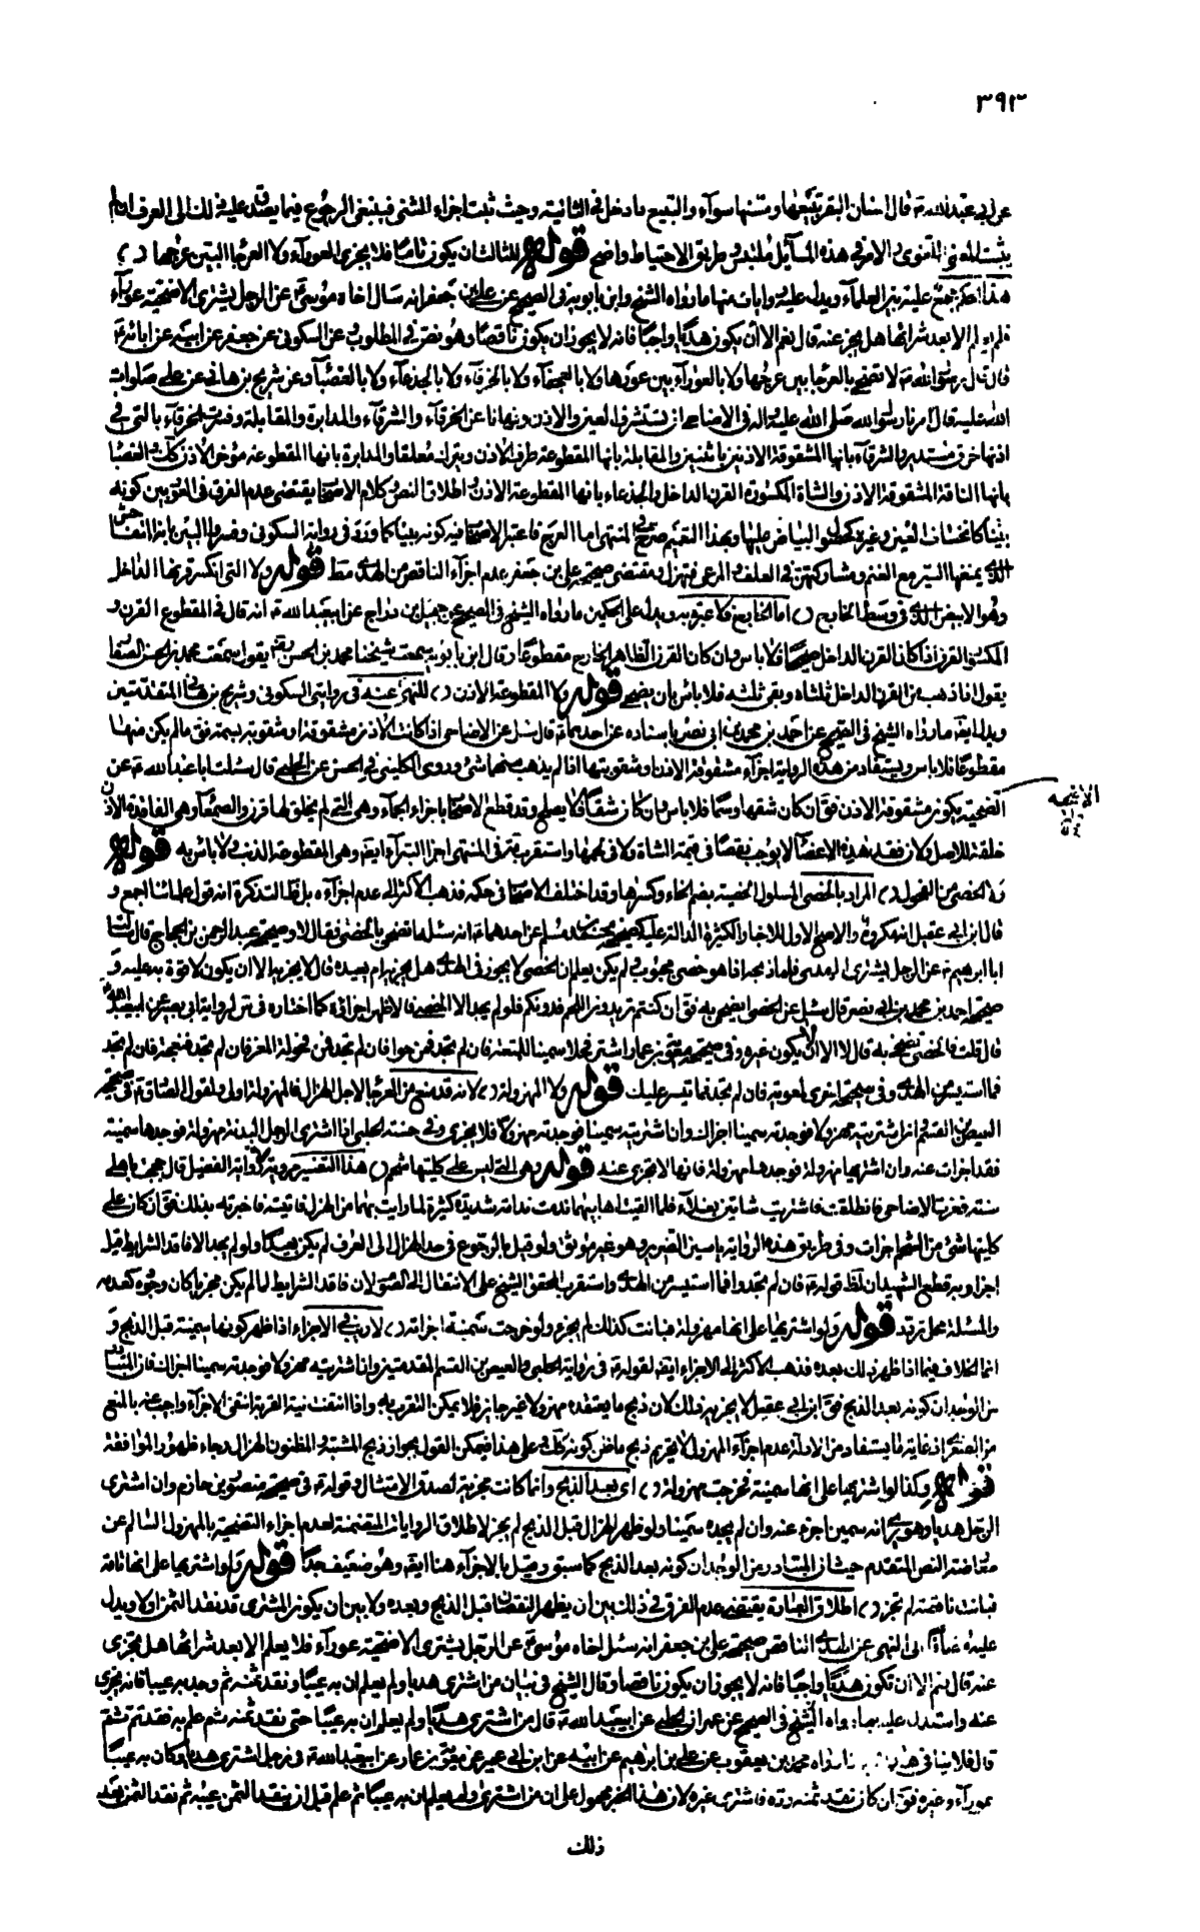 ٣٩٣
عن ابي عبد الله ع قال اسنان البقر تبيعها ومسنها سوآء والتبيع ما دخل في الثانية وحيث ثبت اجزاء المثنى فينبغي الرجوع فيما يصدق عليه ذلك الى العرف ان لم
يثبت المعنى اللغوى والامر في هذه المسآئل ملتبس وطريق الاحتياط واضح قوله الثالث ان يكون تاما فلا يجزى العورآء ولا العرجا البين عرجها
هذا الحكم مجمع عليه بين العلمآء ويدل عليه روايات منها ما رواه الشيخ وابن بابويه في الصحيح عن علي بن جعفر انه سال اخاه موسى ع عن الرجل يشترى الاضحية عورآء
فلم يعلم الا بعد شرائها هل يجزى عنه قال نعم الا ان يكون هديا واجبا فانه لا يجوز ان يكون ناقصا وهو نص في المطلوب وعن السكوني عن جعفر عن ابيه عن ابائه ع
قال قال رسول الله ص لا تضحى بالعرجا بين عرجها ولا بالعورآء بين عورها ولا بالعجفآء ولا بالخرقآء ولا بالجذعآء ولا بالعضبآء وعن شريح بن هاني عن علي صلوات
الله عليه قال امرنا رسول الله صلى الله عليه واله في الاضاحي ان نستشرف العين والاذن ونهانا عن الخرقآء والشرقآء والمدابرة والمقابلة وفسر الخرقآء بالتي في
اذنها خرق مستدير والشرقآء بانها المشقوقة الاذنين باثنين والمقابلة بانها المقطوعة طرف الاذن ويترك معلقا والمدابرة بانها المقطوعة مؤخر الاذن كك والعضبا
بانها الناقة المشقوقة الاذن والشاة المكسورة القرن الداخل والجذعاء بانها المقطوعة الاذن واطلاق النص وكلام الاصحاب يقتضى عدم الفرق في العور بين كونه
بينا كانخساف العين وغيره كحصول البياض عليها وبهذا التعميم صرح في المنتهى اما العرج فاعتبر الاصحاب فيه كونه بينا كما ورد في رواية السكوني وفسروا البين بانه المتفاحش
الذى يمنعها السير مع الغنم ومشاركتهن في العلف والمرعى فتهزل ومقتضى صحيحة علي بن جعفر عدم اجزآء الناقص من الهدى مط قوله ولا التي انكسر قرنها الداخل
وهو الابيض الذى في وسط الخارج اما الخارج فلا عبرة به ويدل على الحكمين ما رواه الشيخ في الصحيح عن جميل بن دراج عن ابي عبد الله ع انه قال في المقطوع القرن و
المكسور القرن اذا كان القرن الداخل صحيحا فلا باس وان كان القرن الظاهر الخارج مقطوعا وقال ابن بابويه سمعت شيخنا محمد بن الحسن رض يقول سمعت محمد بن الحسن الصفار
يقول اذا ذهب من القرن الداخل ثلثاه وبقى ثلثه فلا باس بان يضحى قوله ولا المقطوعة الاذن للنهى عنه في روايتى السكوني وشريح بن هاني المتقدمتين
ويدل ايضا ما رواه الشيخ في الصحيح عن احمد بن محمد بن ابي نصر باسناده عن احدهما ع قال سئل عن الاضاحي اذا كانت الاذن مشقوقة او مثقوبة بسمة فق ما لم يكن منها
مقطوعا فلا باس ويستفاد من هذه الرواية اجزآء مشقوقة الاذن ومثقوبتها اذا لم يذهب منها شئ وروى الكليني في الحسن عن الحلبي قال سئلت ابا عبد الله ع عن
الضحية يكون مشقوقة الاذن فق ان كان شقها وسما فلا باس وان كان شقا فلا يصلح وقد قطع الاصحاب باجزاء الجمآء وهي التي لم يخلق لها قرن والصمعآء وهي الفاقدة الاذن
خلقة للاصل ولان فقد هذه الاعضآء لا يوجب نقصا في قيمة الشاة ولا في لحمها واستقرب في المنتهى اجزآ البترآء ايضا وهي المقطوعة الذنب ولا باس به قوله
ولا الخصى من الفحول المراد بالخصى المسلول الخصية بضم الخاء وكسرها وقد اختلف الاصحاب في حكمه فذهب الاكثر الى عدم اجزآءه بل قال في التذكرة انه قول علمائنا اجمع و
قال ابن ابي عقيل انه مكروه والاصح الاول للاخبار الكثيرة الدالة عليه كصحيحة محمد بن مسلم عن احدهما ع انه سئل ايضحى بالخصى فقال لا وصحيحة عبد الرحمن بن الحجاج قال سئلت
ابا ابراهيم ع عن الرجل يشترى الهدى فلما ذبحه اذا هو خصى مجبوب ولم يكن يعلم ان الخصى لا يجوز في الهدى هل يجزيه ام يعيده قال لا يجزيه الا ان يكون لا قوة به عليه و
صحيحة احمد بن محمد بن ابي نصر قال سئل عن الخصى ايضحى به فق ان كنتم تريدون اللحم فدونكم فلو لم يجد الا الخصى فالاظهر اجزائه كما اختاره في س لرواية ابي بصير عن ابي عبد الله ع
قال قلت فالخصى يضحى به قال لا الا ان لا يكون غيره وفي صحيحة معوية بن عمار اشتر فحلا سمينا للمتعة فان لم تجد فمن جوا فان لم تجد فمن فحولة المعز فان لم تجد فنعجة فان لم تجد
فما استيسر من الهدى وفي صحيحة اخرى لمعوية فان لم تجد فما تيسر عليك قوله ولا المهزولة لانه قد منع من العرجا لاجل الهزال فالمهزولة اولى ولقول الصادق ع في صحيحة
العيص بن القسم ان اشتريته مهزولا فوجدته سمينا اجزاك وان اشتريته سمينا فوجدته مهزولا فلا يجزى وفي حسنة الحلبي اذا اشترى الرجل البدنة مهزولة فوجدها سمينة
فقد اجزات عنه وان اشتراها مهزولة فوجدها مهزولة فانها لا تجزى عنه قوله وهى التي ليس على كليتها شحم هذا التفسير مروى في رواية الفضيل قال حججت باهلي
سنة فعزت الاضاحي فانطلقت فاشتريت شاتين بغلاء فلما القيت اهابيهما ندمت ندامة شديدة كثيرة لما رايت بهما من الهزال فاتيته فاخبرته بذلك فق ان كان على
كليتها شئ من الشحم اجزات وفي طريق هذه الرواية ياسين الضرير وهو غير موثق ولو قيل بالرجوع في حد الهزال الى العرف لم يكن بعيدا ولو لم يجد الا فاقد الشرايط قيل
اجزا وبه قطع الشهيدان لظ قوله ع فان لم تجدوا فما استيسر من الهدى واستقرب المحقق الشيخ علي الانتقال الى الصوم لان فاقد الشرايط لما لم يكن مجزيا كان وجوده كعدمه
والمسئلة محل تردد قوله ولو اشتراها على انها مهزولة فبانت كذلك لم يجزه ولو خرجت سمينة اجزاته لا ريب في الاجزاء اذا ظهر كونها سمينة قبل الذبح و
انما الخلاف فيما اذا ظهر ذلك بعده فذهب الاكثر الى الاجزاء ايضا لقوله ع في رواية الحلبي والعيص بن القسم المتقدمتين وان اشتريته مهزولا فوجدته سمينا اجزاك فان المتبادر
من الوجدان كونه بعد الذبح فق ابن ابي عقيل لا يجزيه وذلك لان ذبح ما يعتقده مهزولا غير جايز فلا يمكن التقرب به واذا انتفت نية القربة انتفى الاجزآء واجيب عنه بالمنع
من الصغرى اذ غاية ما يستفاد من الادلة عدم اجزآء المهزول لا تحريم ذبح ما ظن كونه كك وعلى هذا فيمكن القول بجواز ذبح المشتبه والمظنون الهزال رجاء ظهور الموافقة
قوله وكذا لو اشتراها على انها سمينة فخرجت مهزولة اى بعد الذبح وانما كانت مجزية لصدق الامتثال وقوله ع في صحيحة منصور بن حازم وان اشترى
الرجل هديا وهو يرى انه سمين اجزء عنه وان لم يجده سمينا ولو ظهر الهزال قبل الذبح لم يجز لاطلاق الروايات المتضمنة لعدم اجزاء التضحية بالمهزول السالم عن
معارضة النص المتقدم حيث ان المتبادر من الوجدان كونه بعد الذبح كما سبق وقيل بالاجزآء هنا ايضا وهو ضعيف جدا قوله ولو اشتراها على انها تامة
فبانت ناقصة لم تجز اطلاق العبارة يقتضى عدم الفرق في ذلك بين ان يظهر النقصان قبل الذبح وبعده ولا بين ان يكون المشترى قد نقد الثمن اولا ويدل
عليه مضافا الى النهى عن الهدى الناقص صحيحة علي بن جعفر انه سئل اخاه موسى ع عن الرجل يشترى الاضحية عورآء فلا يعلم الا بعد شرائها هل تجزى
عنه قال نعم الا ان تكون هديا واجبا فانه لا يجوز ان يكون ناقصا وقال الشيخ في يب ان من اشترى هديا ولم يعلم ان به عيبا ونقد ثمنه ثم وجد به عيبا فانه يجزى
عنه واستدل عليه بما رواه الشيخ في الصحيح عن عمران الحلبي عن ابي عبد الله ع قال من اشترى هديا ولم يعلم ان به عيبا حتى نقد ثمنه ثم علم به فقد تم ثم
قال ولا ينافي هذا ما رواه محمد بن يعقوب عن علي بن ابراهيم عن ابيه عن ابن ابي عمير عن معوية بن عمار عن ابي عبد الله ع في رجل اشترى هديا وكان به عيبا
عورآء وغيره فق ان كان نقد ثمنه رده واشترى غيره لان هذا الخبر محمول على ان من اشترى ولم يعلم ان به عيبا ثم علم قبل ان ينقد الثمن عيبه ثم نقد الثمن بعد
ذلك